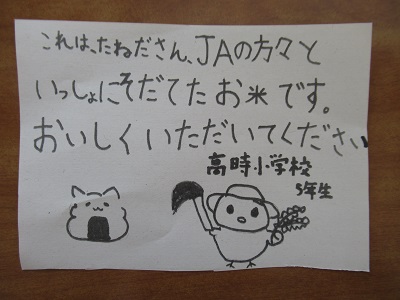 これは、たねださん、JAの方々と
いっしょにそだてたお米です。
おいしくいただいてください
高時小学校
5年生